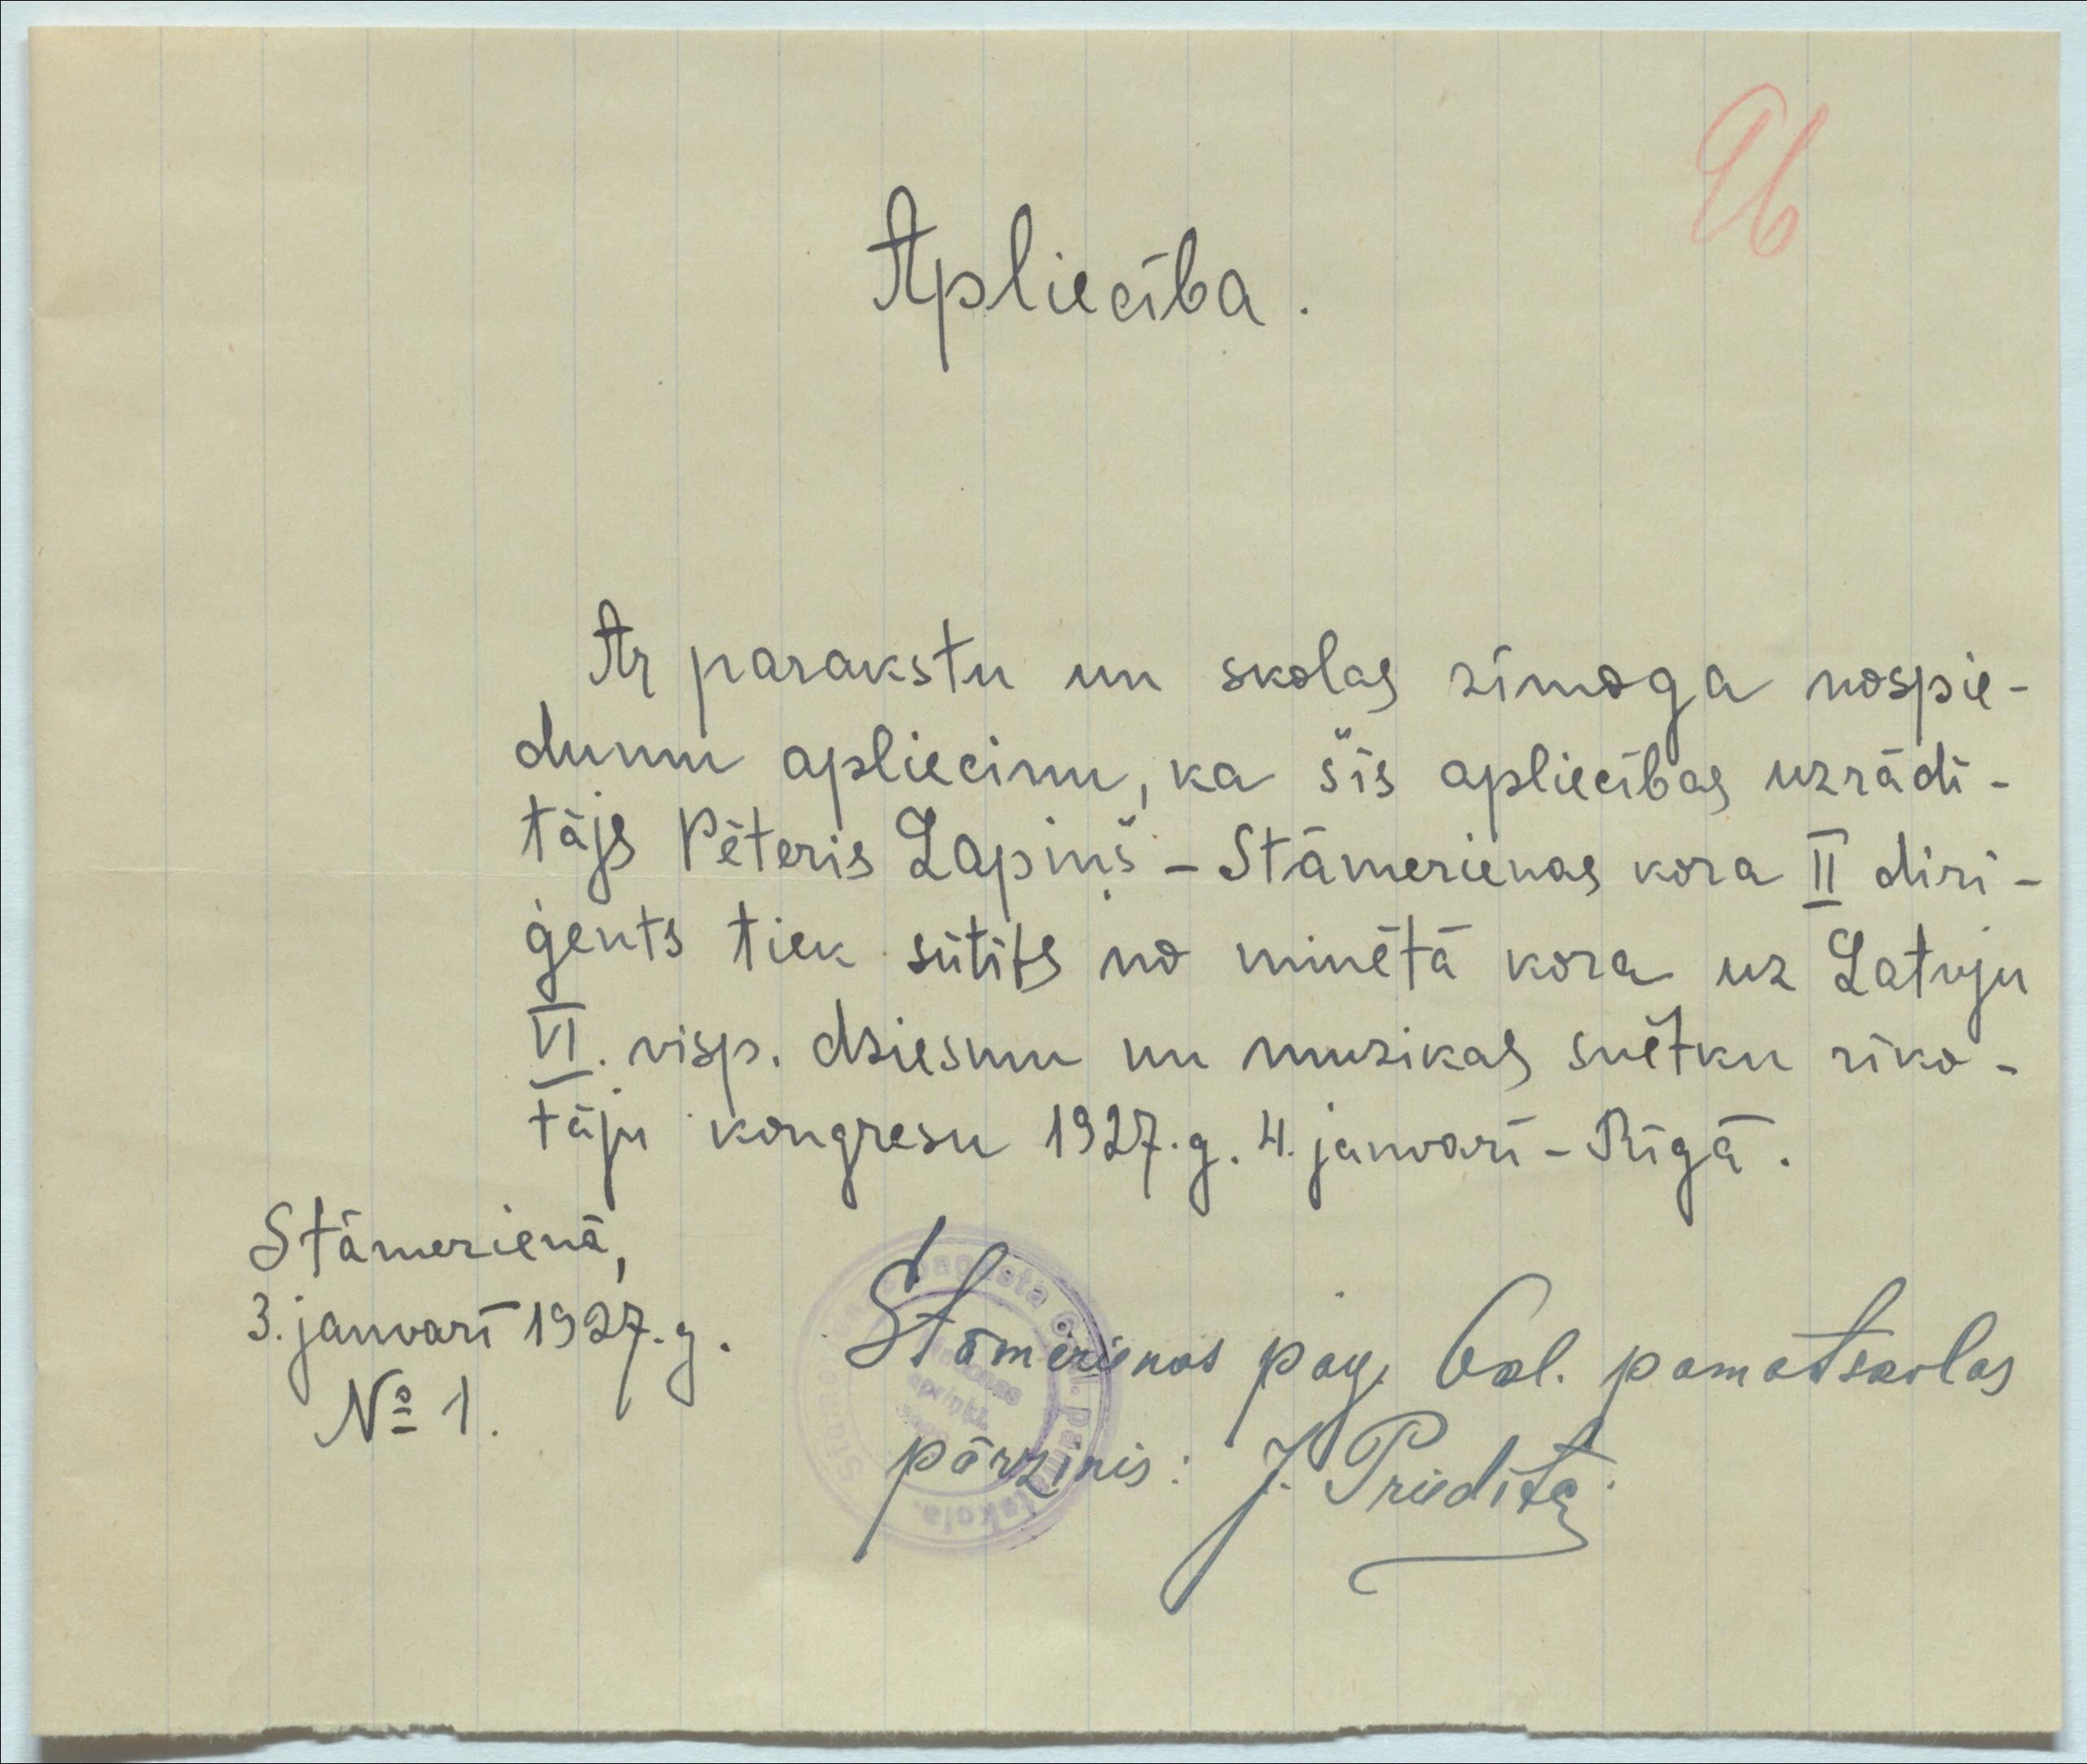 96
Apliecība.
Ar parakstu un skolas zīmoga nospie-
dumu apliecinu, ka šīs apliecības uzrādī-
tājs Pēteris Lapiņš - Stāmerienas kora II diri-
ģents tiek sūtīts no minētā kora uz Latvju
VI. visp. dziesmu un muzikas svētku rīko-
tāju kongresu 1927. g. 4. janvarī - Rīgā.
Stāmerienā,
3. janvarī 1927. g.
№ 1.
Stāmerienas pag. 6kl. pamatskolas
pārzinis: J. Priedīte
pagasta 6 kl. pamatskola